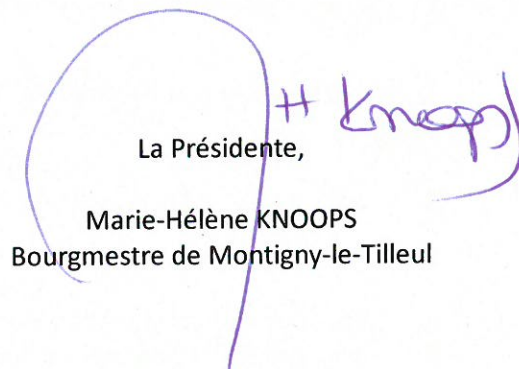 H Knoops
La Présidente,
Marie-Hélène KNOOPS
Bourgmestre de Montigny-le-Tilleul